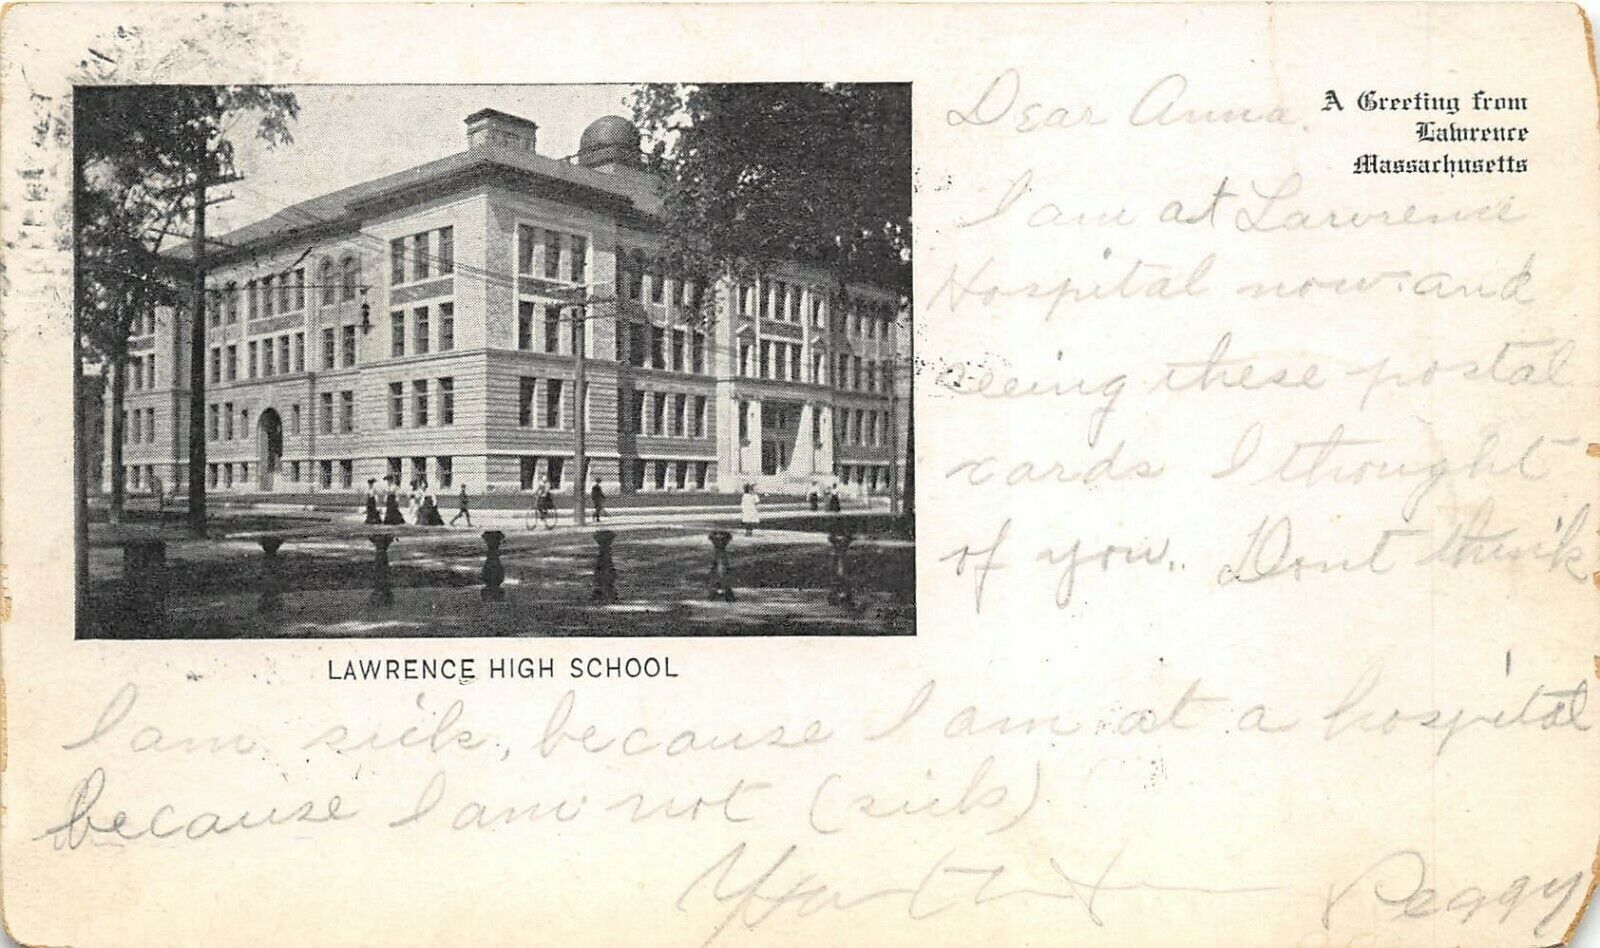 A Greeting from
Lawrence
Massachusetts
LAWRENCE HIGH SCHOOL
Dear Anna.
I am at Lawrence
Hospital now and
seeing these postal
cards I thought
of you. Dont think
I am sick, because I am at a hospital
because I am not (sick)
Peggy